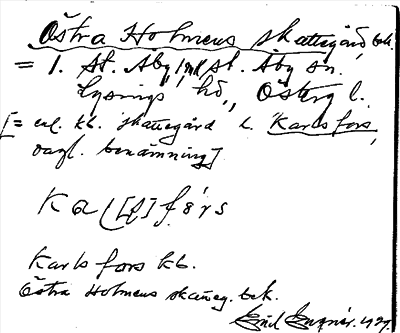 Östra Holmens skattegård, bek.
= 1. St. Åby, St. Åby sn.
Lysings hd., Österg l.
[= enl. kb. skattegård t. Karlsfors,
vagl. benämning]
Ka([l])fórs
Karlsfors kb.
Östra Holmens skatteg. bek.
Emil